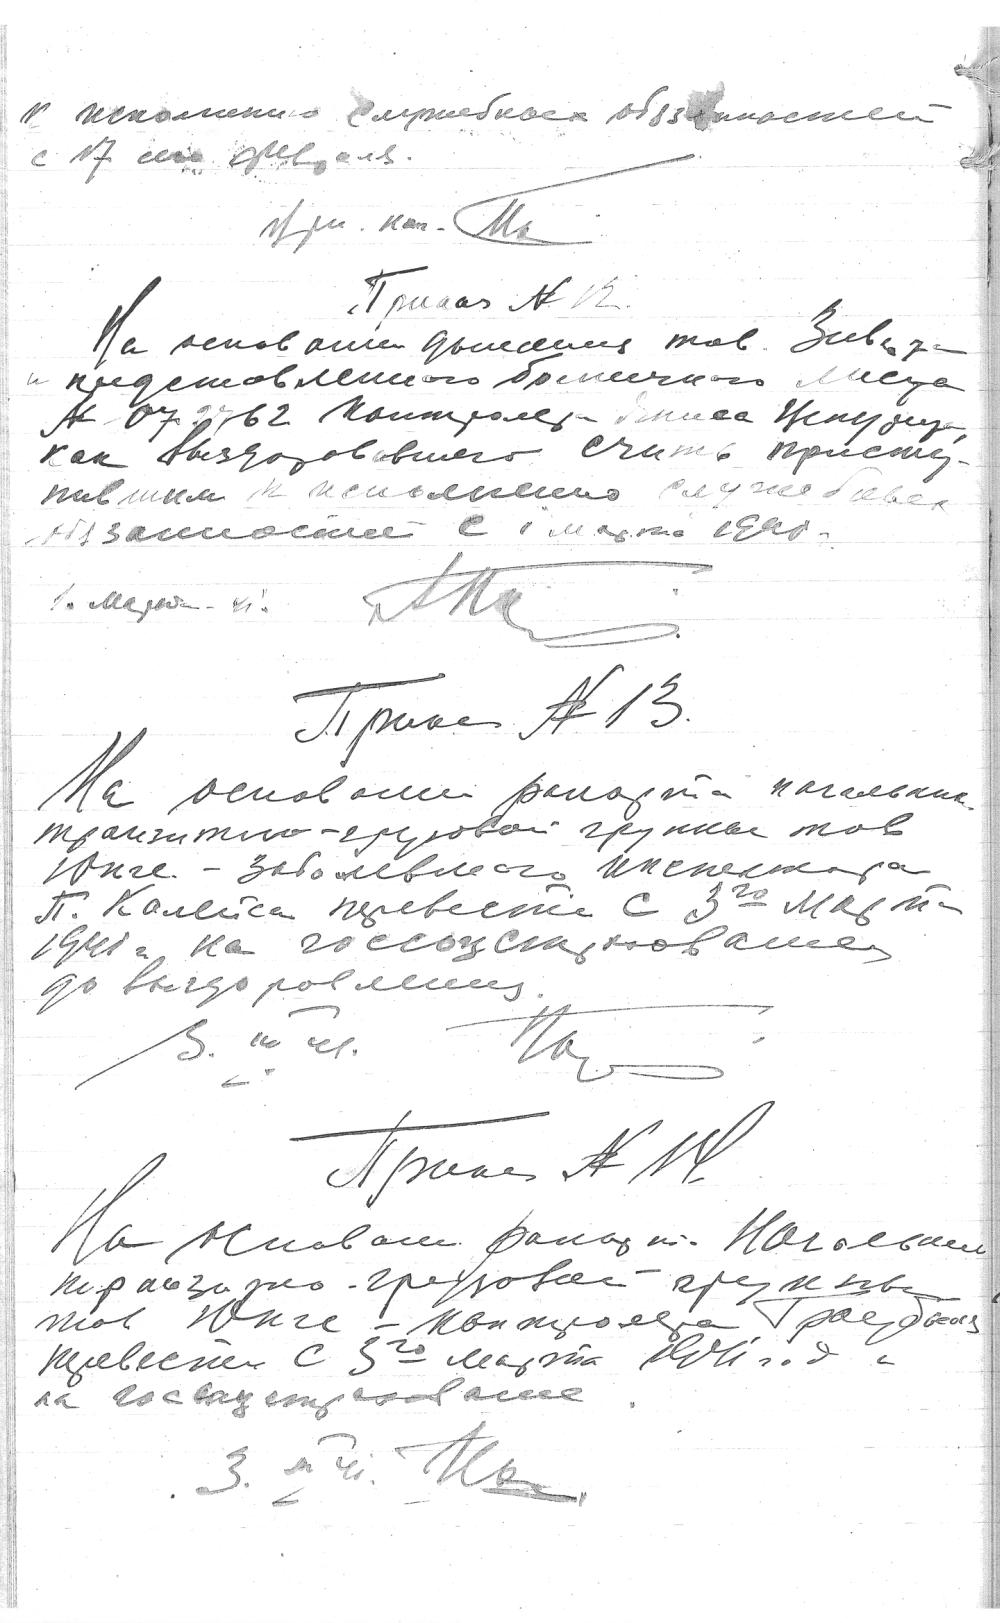 к исполнению служебных обязанностей
с 17 го февраля.
Приказ № 12.
На основании донесения тов.
и представленного больничного листа
№ контролера
как выздоровевшего считать присту-
пившим к исполнению служебных
обязанностей с 1 марта 1941 г.
1. Марта - 41.
Приказ № 13.
На основании рапорта начальник.
транзитно-грузовой группы тов
Юнге - заболевшего инспектора
П. Калейса перевести с 3го Марта
1941 г на госсоцстрахование
до выздоровления.
3. III 41.
Приказ № 14.
На основании рапорта Начальник
транзитно-грузовой группы
тов Юнге - контролера
перевести с 3го марта 1941 года
на госсоцстрахование.
3. III 41.